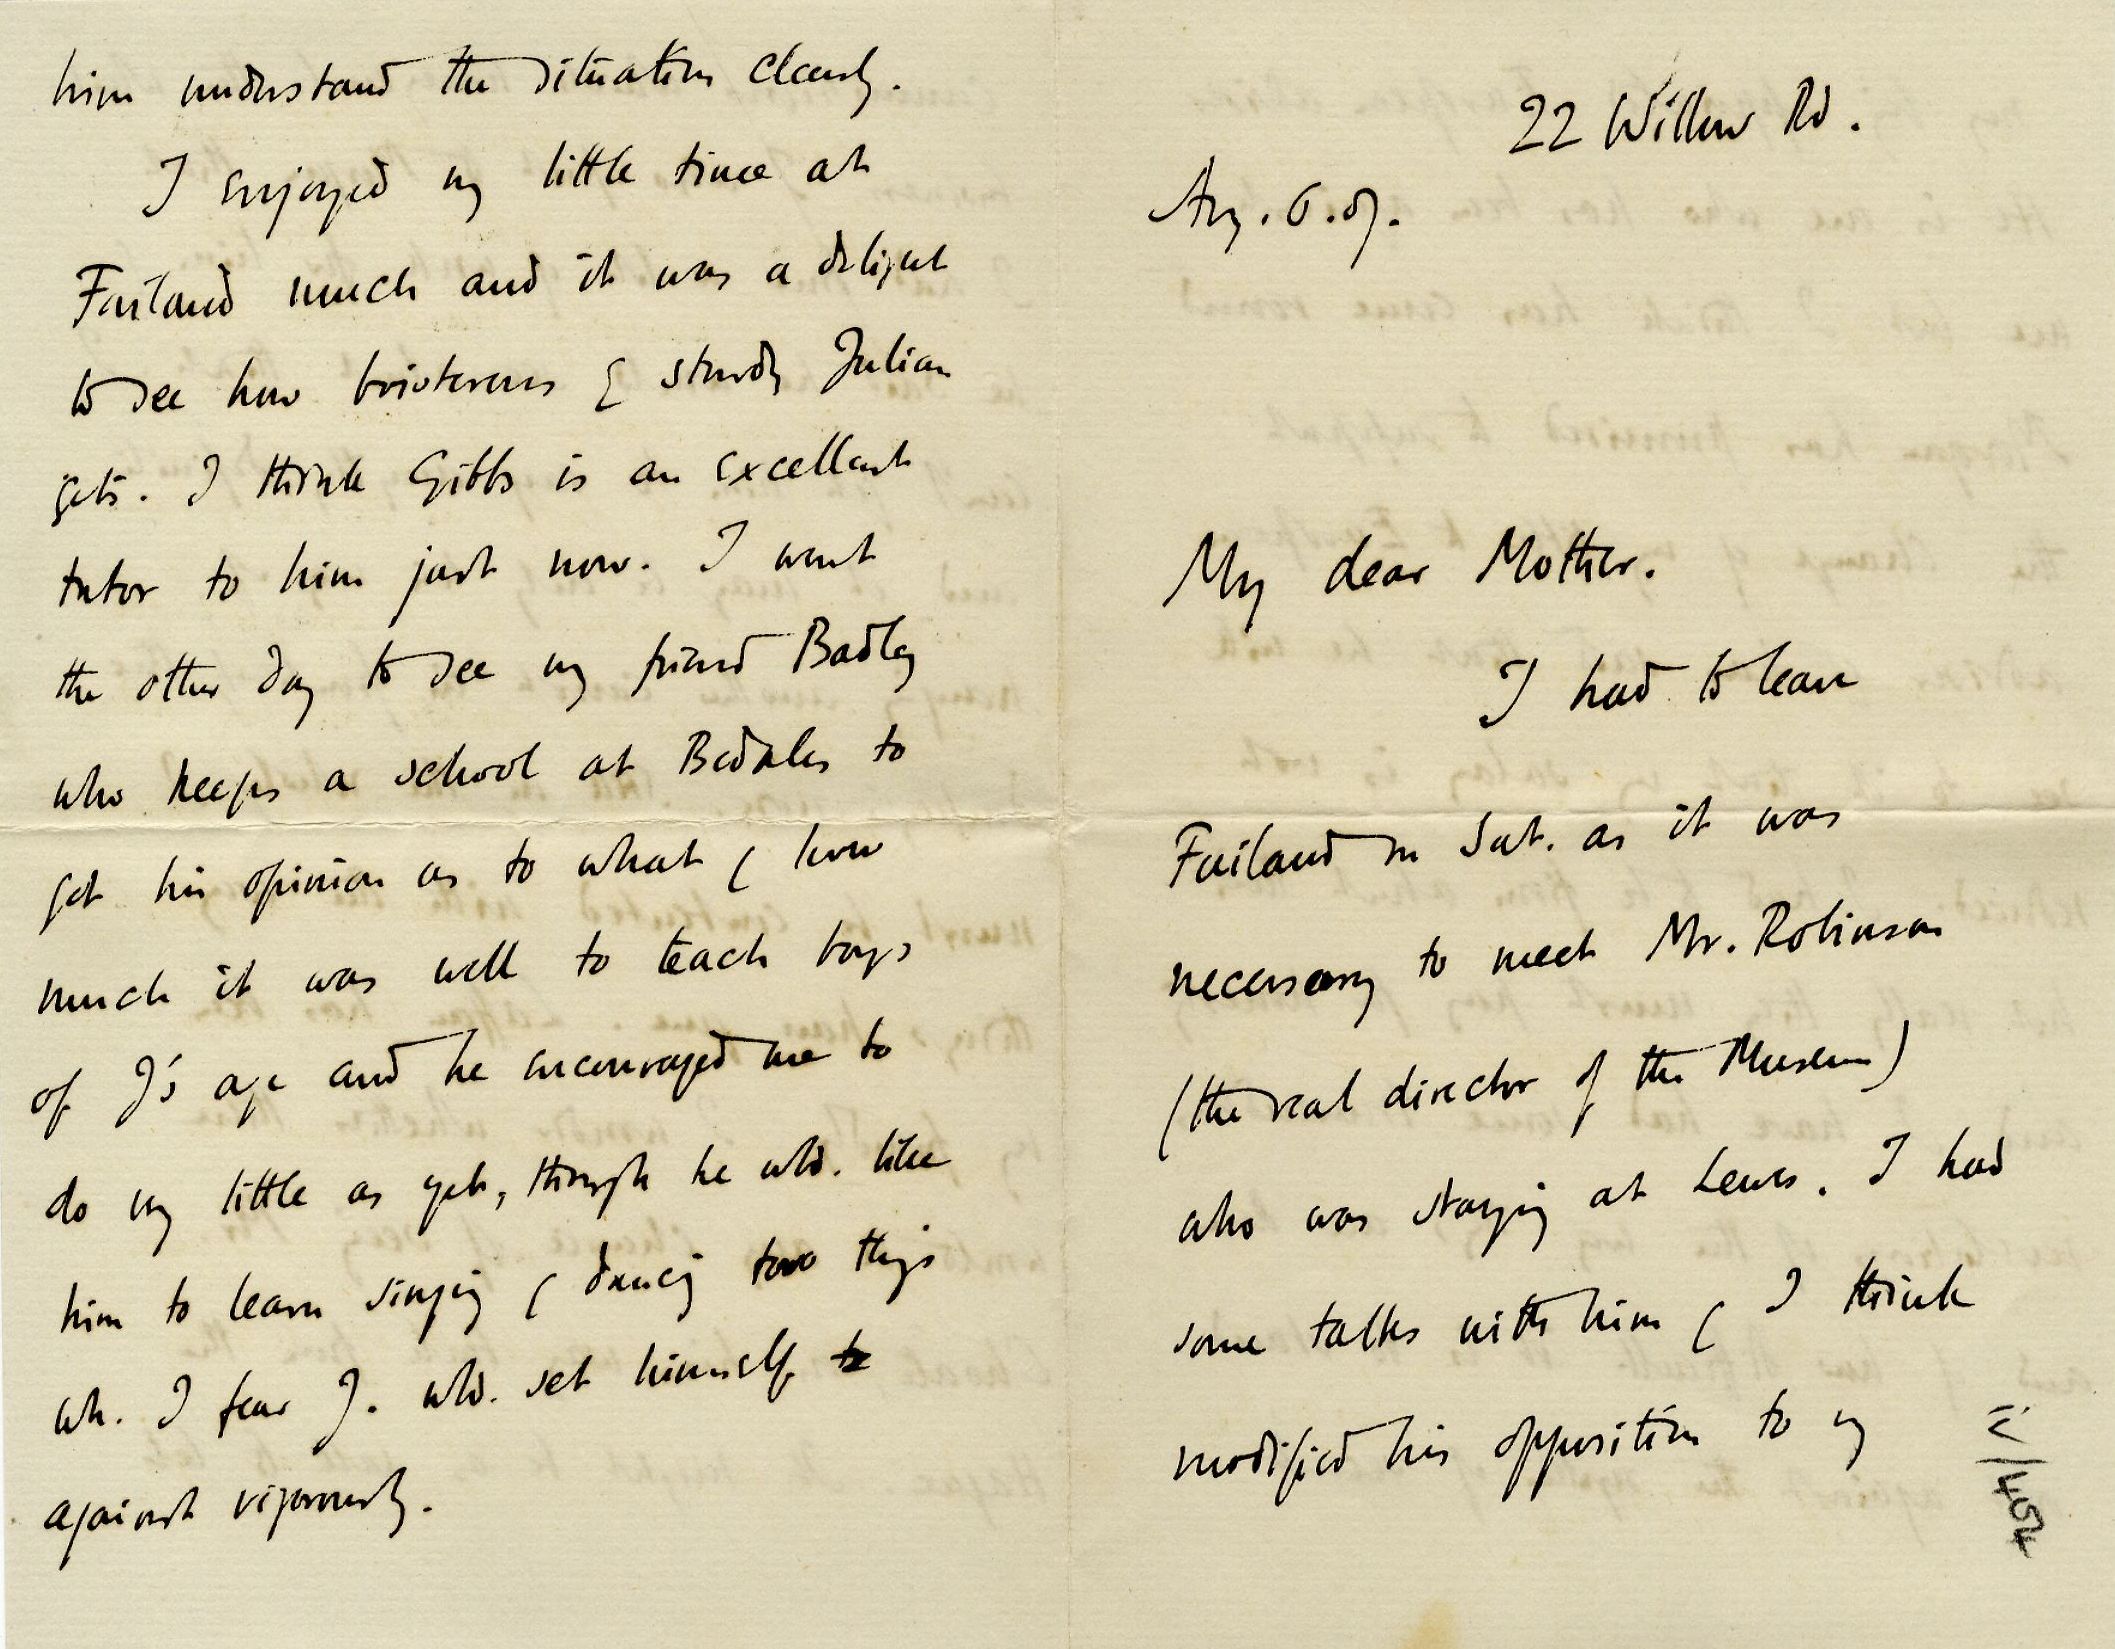 22 Willow Rd.
Aug. 6. 07.
My dear Mother.
I had to leave
Failand on Sat. as it was
necessary to meet Mr. Robinson
(the real director of the Museum)
who was staying at Lewes. I had
some talks with him & I think
modified his opposition to my
ii/454
him understand the situation clearly.
I enjoyed my little time at
Failand much and it was a delight
to see how boisterous & sturdy Julian
gets. I think Gibbs is an excellent
tutor to him just now. I went
the other day to see my friend Badley
who keeps a school at Bedales to
get his opinion as to what & how
much it was well to teach boys
of J's age and he encouraged me to
do very little as yet, though he wld. like
him to learn singing & dancing two things
wh. I fear J. wld. set himself
against vigorously.